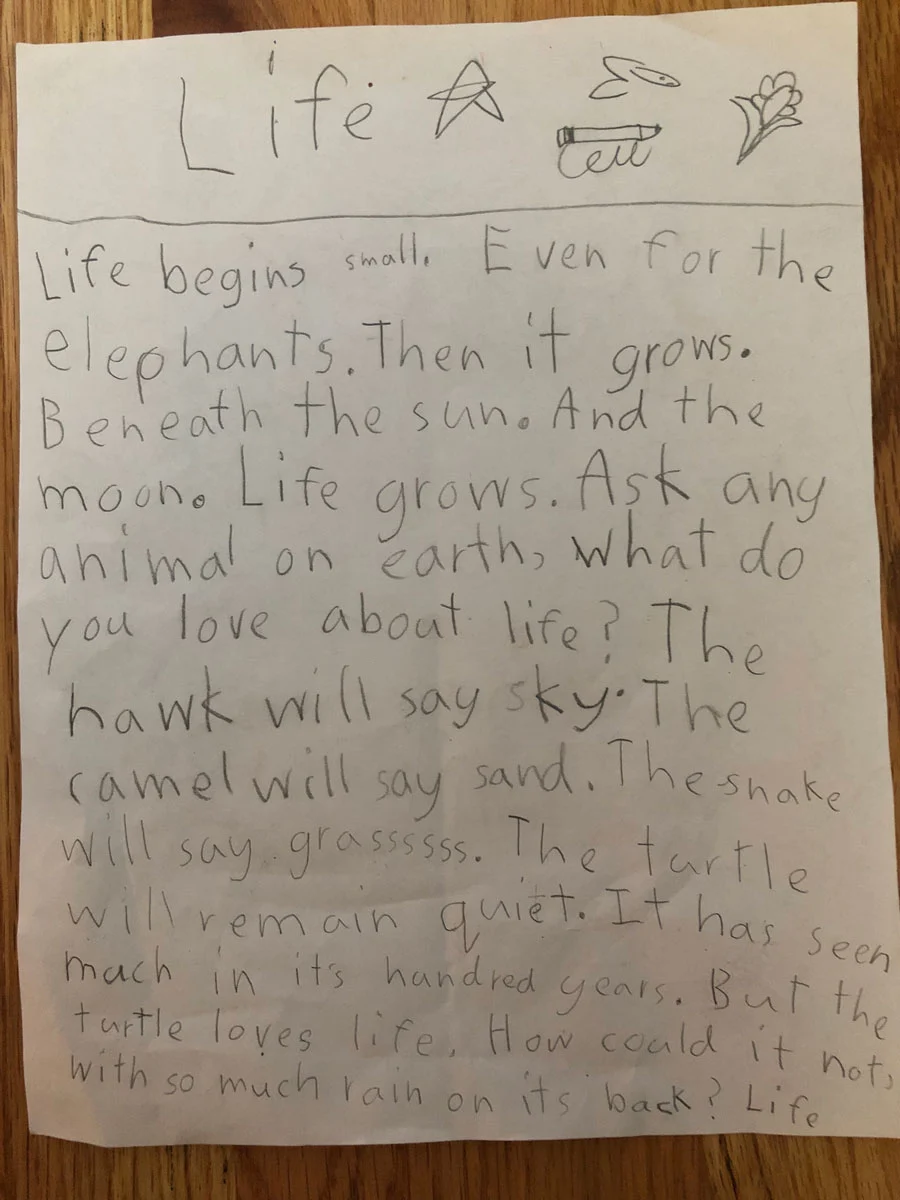 Life
Life begins small. Even for the
elephants. Then it grows.
Beneath the sun. And the
moon. Life grows. Ask any
animal on earth, what do
you love about life? The
hawk will say sky. The
camel will say sand. The snake
will say grassssss. The turtle
will remain quiet. It has seen
much in it's hundred years. But the
turtle loves life. How could it not,
with so much rain on its back? Life